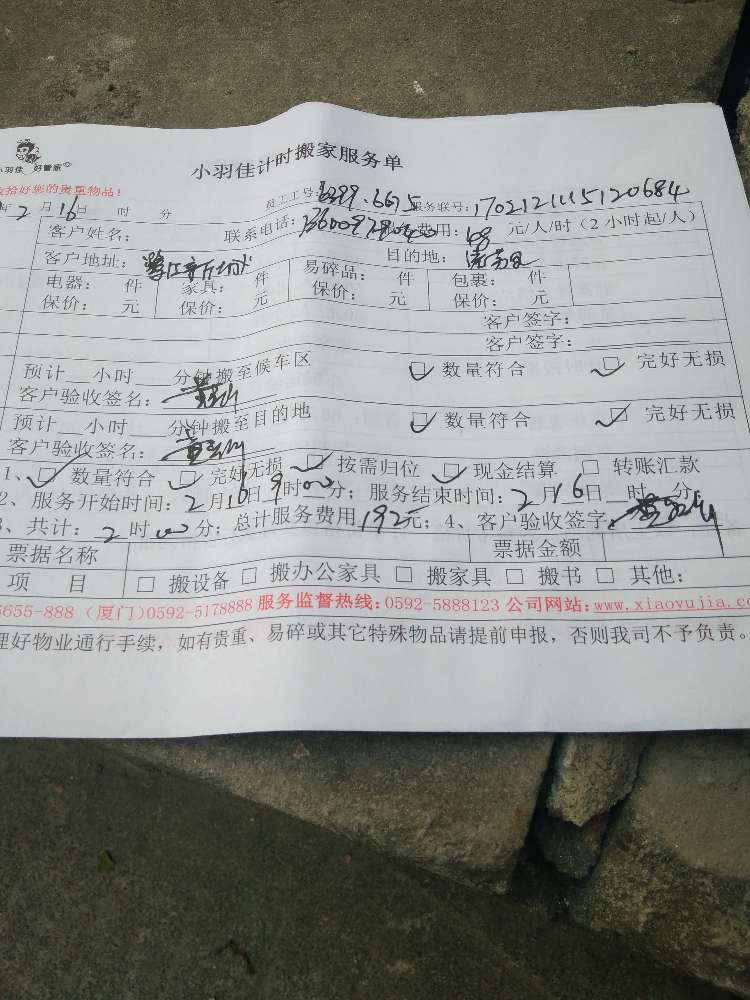 小羽佳 好管家
小羽佳计时搬家服务单
收拾好您的贵重物品!
员工工号:6399.6675 服务联号:17021211115120684
年2月16日 时 分
客户姓名: 联系电话: 费用:48 元/人/时(2小时起/人)
客户地址: 目的地:
电器: 件 家具: 件 易碎品: 件 包裹: 件
保价: 元 保价: 元 保价: 元 保价: 元
客户签字:
客户签字:
预计 小时 分钟搬至候车区 数量符合 完好无损
客户验收签名:
预计 小时 分钟搬至目的地 数量符合 完好无损
客户验收签名:
1、 数量符合 完好无损 按需归位 现金结算 转账汇款
2、服务开始时间:2月16日9时00分;服务结束时间:2月16日 时 分
3、共计:2时00分;总计服务费用192元;4、客户验收签字:
票据名称 票据金额
项 目 搬设备 搬办公家具 搬家具 搬书 其他:
5655-888(厦门)0592-5178888 服务监督热线:0592-5888123 公司网站:www.xiaoyujia.co
理好物业通行手续,如有贵重、易碎或其它特殊物品请提前申报,否则我司不予负责。